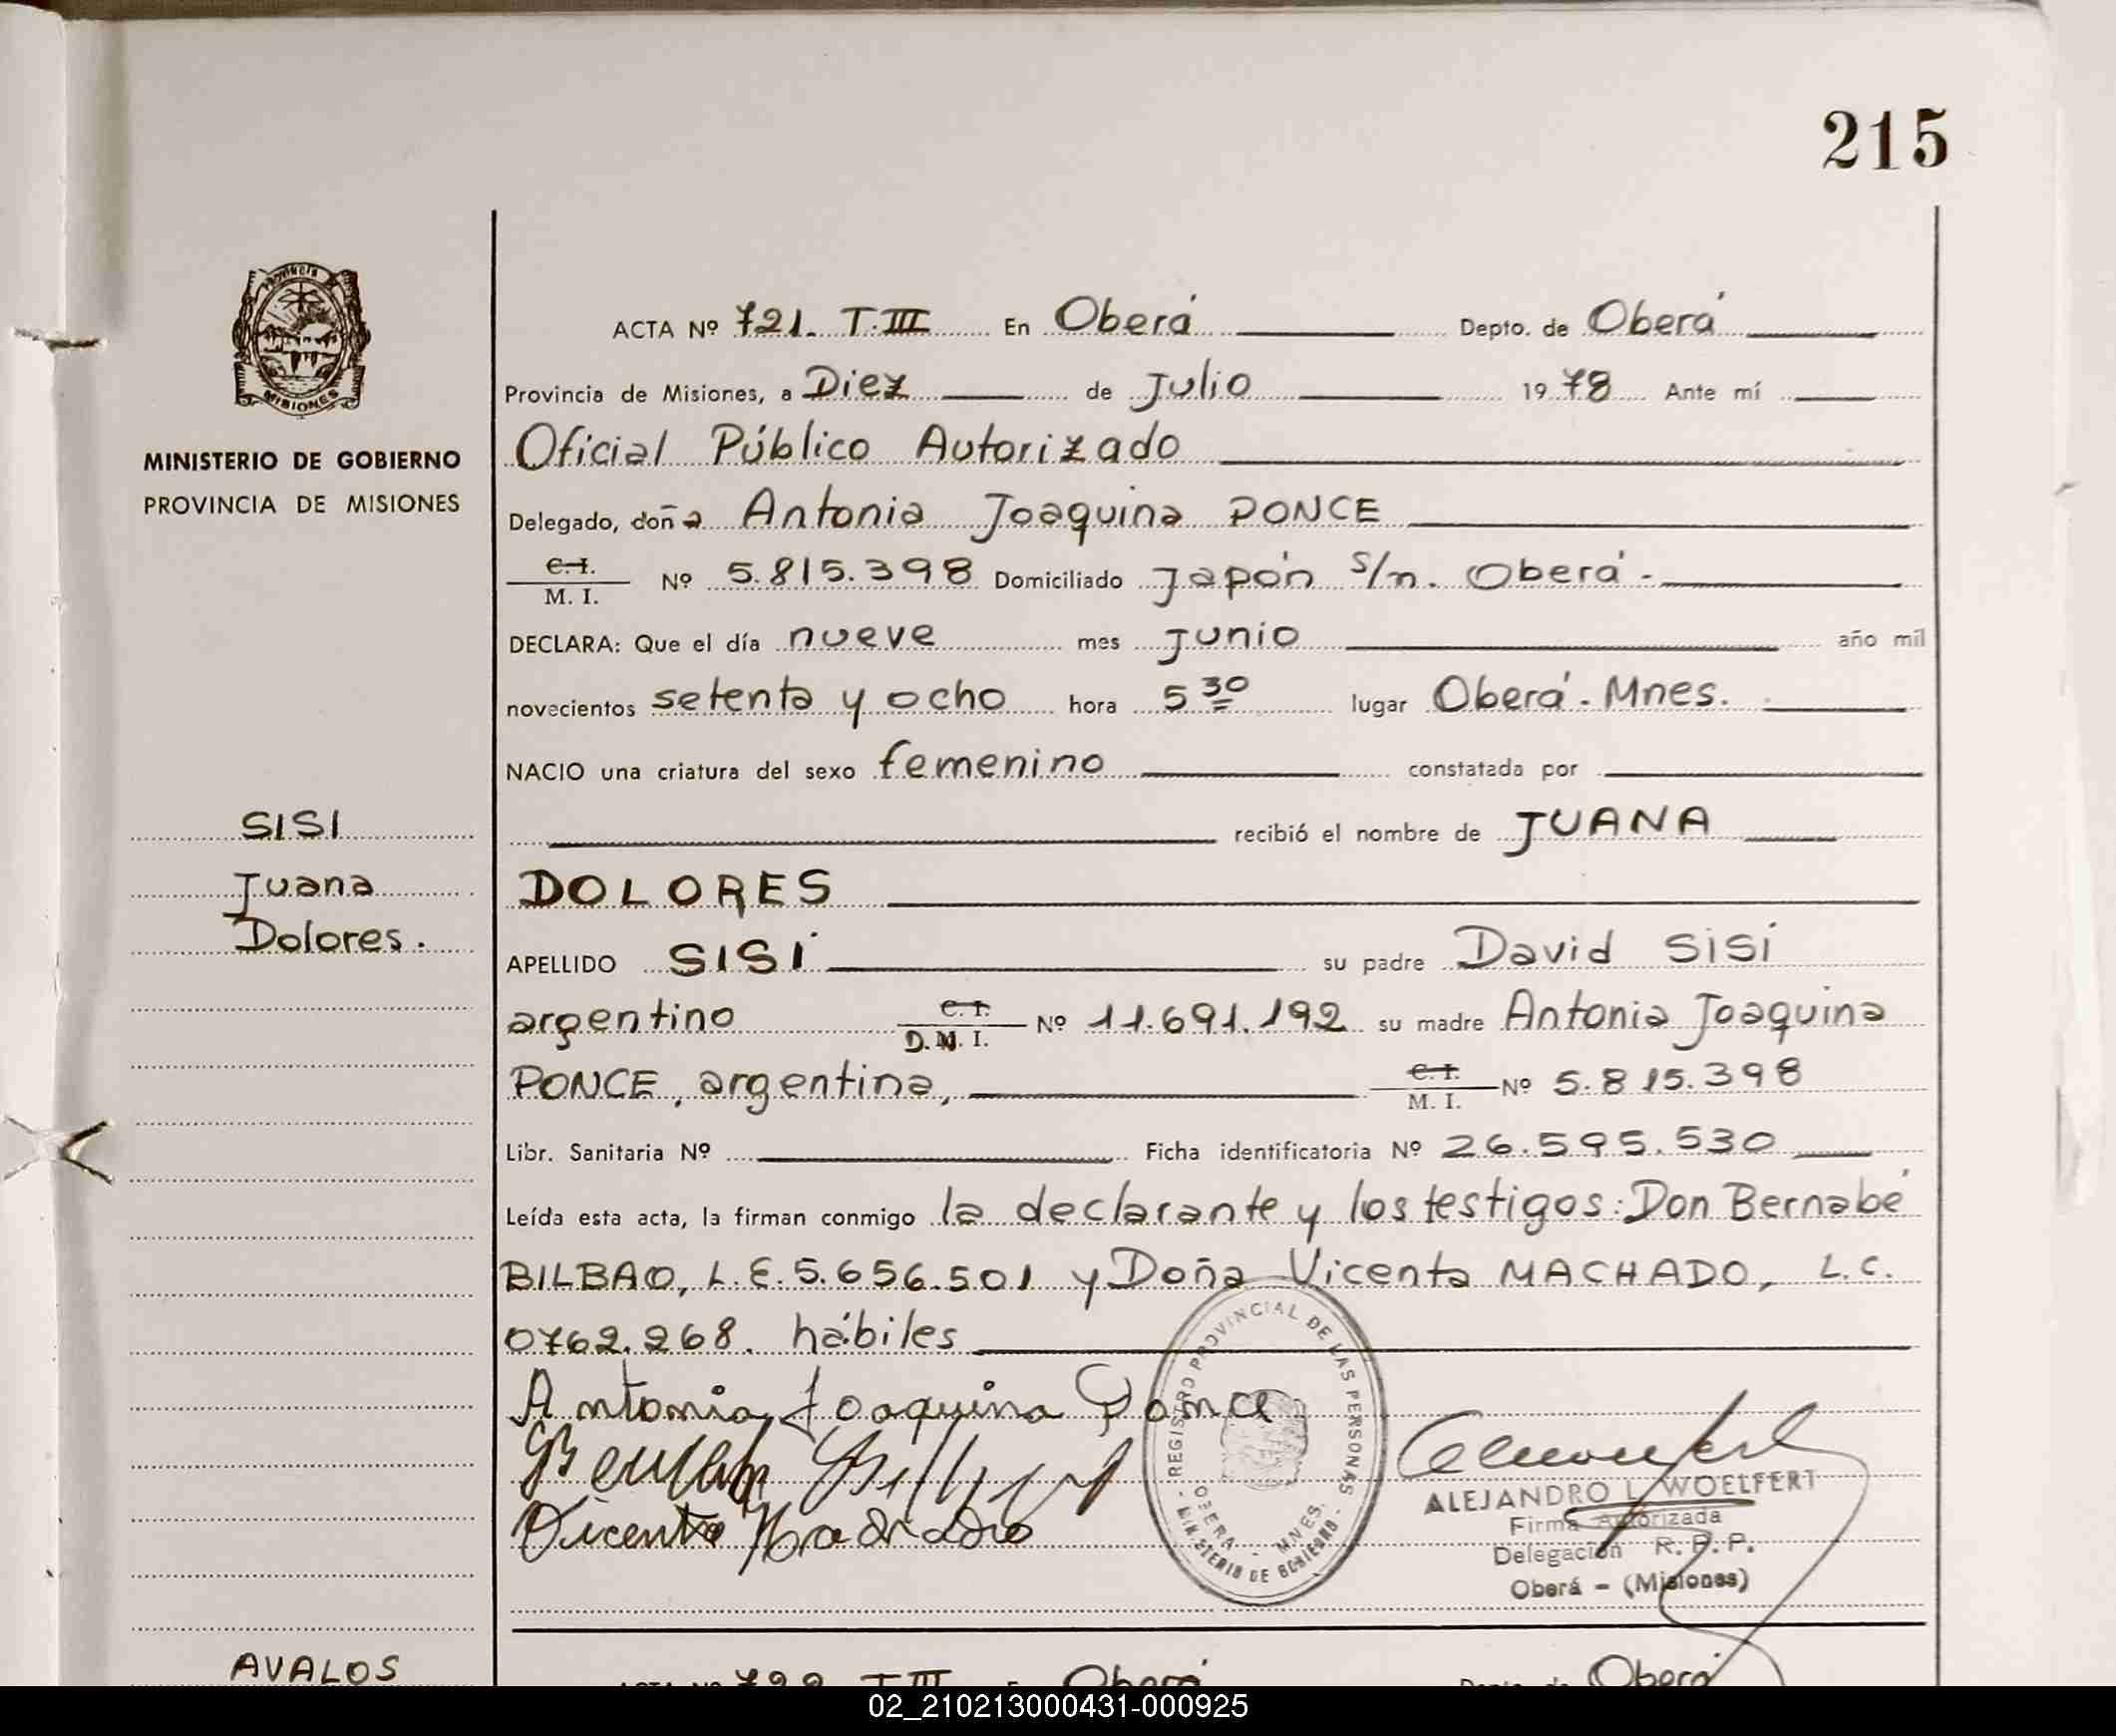 215
PROVINCIA
MISIONES
MINISTERIO DE GOBIERNO
PROVINCIA DE MISIONES
ACTA Nº 721. T.III En Oberá Depto. de Oberá
Provincia de Misiones, a Diez de Julio 1978 Ante mí
Oficial Público Autorizado
Delegado, doña Antonia Joaquina PONCE
C.I.
M. I. Nº 5.815.398 Domiciliado Japón s/n. Oberá.-
DECLARA: Que el día nueve mes Junio año mil
novecientos setenta y ocho hora 5 30 lugar Oberá. Mnes.
NACIO una criatura del sexo femenino constatada por
recibió el nombre de JUANA
DOLORES
SISI
Juana
Dolores.
APELLIDO SISI su padre David SISI
argentino C.I. D.M.I. Nº 11.691.192 su madre Antonia Joaquina
PONCE, argentina, C.I. M. I. Nº 5.815.398
Libr. Sanitaria Nº Ficha identificatoria Nº 26.595.530
Leída esta acta, la firman conmigo la declarante y los testigos: Don Bernabé
BILBAO, L.E. 5.656.501 y Doña Vicenta MACHADO, L.C.
0762.268. hábiles
Antonia Joaquina Ponce
REGISTRO PROVINCIAL DE LAS PERSONAS
OBERA - MNES.
MINISTERIO DE GOBIERNO
ALEJANDRO L. WOELFERT
Firma Autorizada
Delegación R. P. P.
Oberá - (Misiones)
AVALOS
ACTA Nº 722 T III En Oberá Depto. de Oberá
02_210213000431-000925